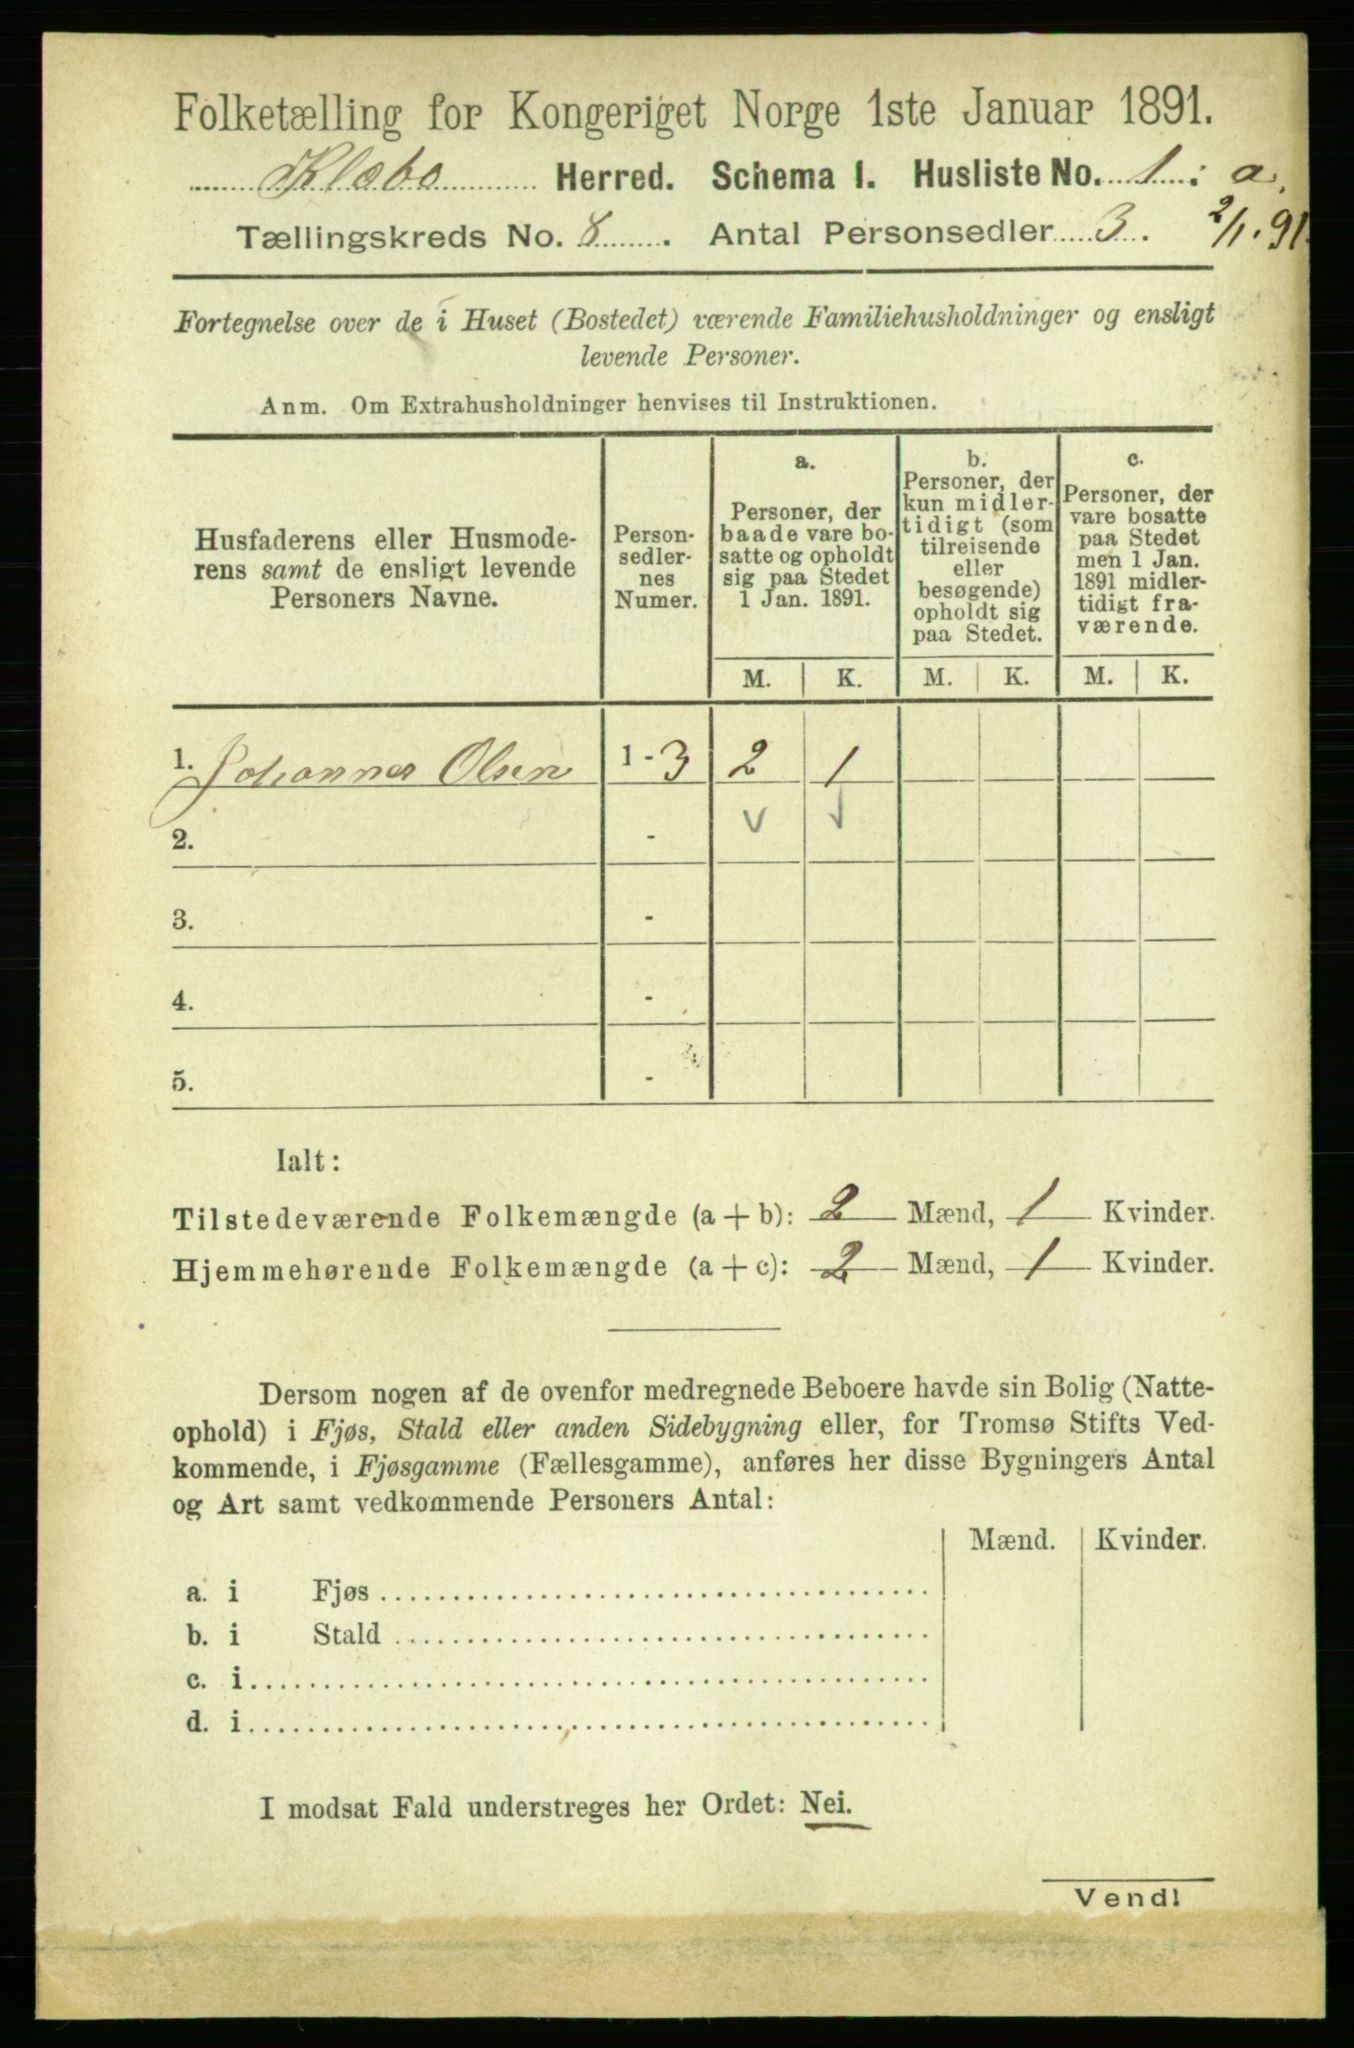 Folketælling for Kongeriget Norge 1ste Januar 1891.
Klæbo Herred. Schema I. Husliste No. 1 : a.
Tællingskreds No. 8 . Antal Personsedler 3 . 2/1. 91.
Fortegnelse over de i Huset (Bostedet) værende Familiehusholdninger og ensligt
levende Personer.
Anm. Om Extrahusholdninger henvises til Instruktionen.
Husfaderens eller Husmode-
rens samt de ensligt levende
Personers Navne.
Person-
sedler-
nes
Numer.
a.
Personer, der
baade vare bo-
satte og opholdt
sig paa Stedet
1 Jan. 1891.
b.
Personer, der
kun midler-
tidigt (som
tilreisende
eller
besøgende)
opholdt sig
paa Stedet.
c.
Personer, der
vare bosatte
paa Stedet
men 1 Jan.
1891 midler-
tidigt fra-
værende.
M. K. M. K. M. K.
1. Johannes Olsen 1 - 3 2 1
2. -
3. -
4. -
5. -
Ialt:
Tilstedeværende Folkemængde (a + b): 2 Mænd, 1 Kvinder.
Hjemmehørende Folkemængde (a + c): 2 Mænd, 1 Kvinder.
Dersom nogen af de ovenfor medregnede Beboere havde sin Bolig (Natte-
ophold) i Fjøs, Stald eller anden Sidebygning eller, for Tromsø Stifts Ved-
kommende, i Fjøsgamme (Fællesgamme), anføres her disse Bygningers Antal
og Art samt vedkommende Personers Antal:
Mænd. Kvinder.
a. i Fjøs
b. i Stald
c. i
d. i
I modsat Fald understreges her Ordet: Nei.
Vend!